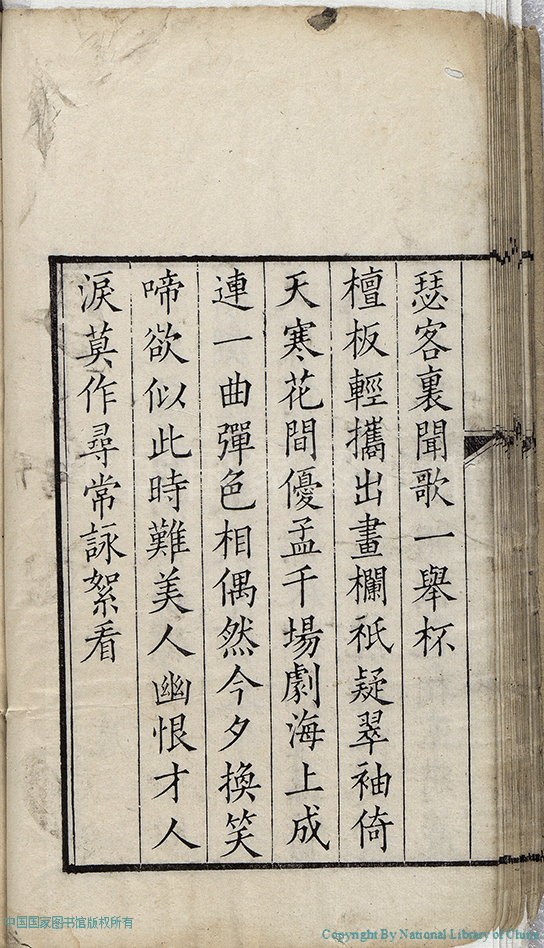 瑟客裏聞歌一舉杯
檀板輕攜出畫欄祇疑翠袖倚
天寒花間優孟千場劇海上成
連一曲彈色相偶然今夕換笑
啼欲似此時難美人幽恨才人
淚莫作尋常詠絮看
中国国家图书馆版权所有
Copyright By National Library of China